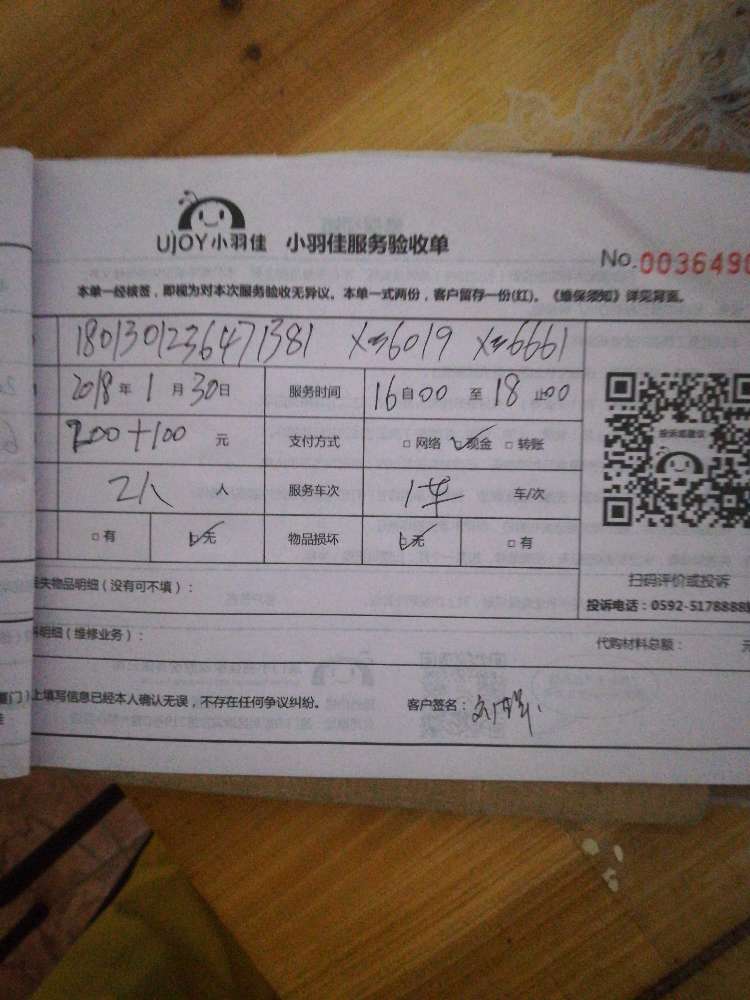 UJOY小羽佳 小羽佳服务验收单
No. 0036490
本单一经核签，即视为对本次服务验收无异议。本单一式两份，客户留存一份(红)。《维保须知》详见背面。
1801301236471381 X≈6019 X≈6661
2018年1月30日 服务时间 16自00至18止00
200+100元 支付方式 □网络 ☑现金 □转账
2人 人 服务车次 1车 车/次
□有 ☑无 物品损坏 ☑无 □有
投诉或建议
扫码评价或投诉
投诉电话：0592-5178888
失物品明细（没有可不填）：
明细（维修业务）： 代购材料总额： 元
厦门）上填写信息已经本人确认无误，不存在任何争议纠纷。 客户签名：